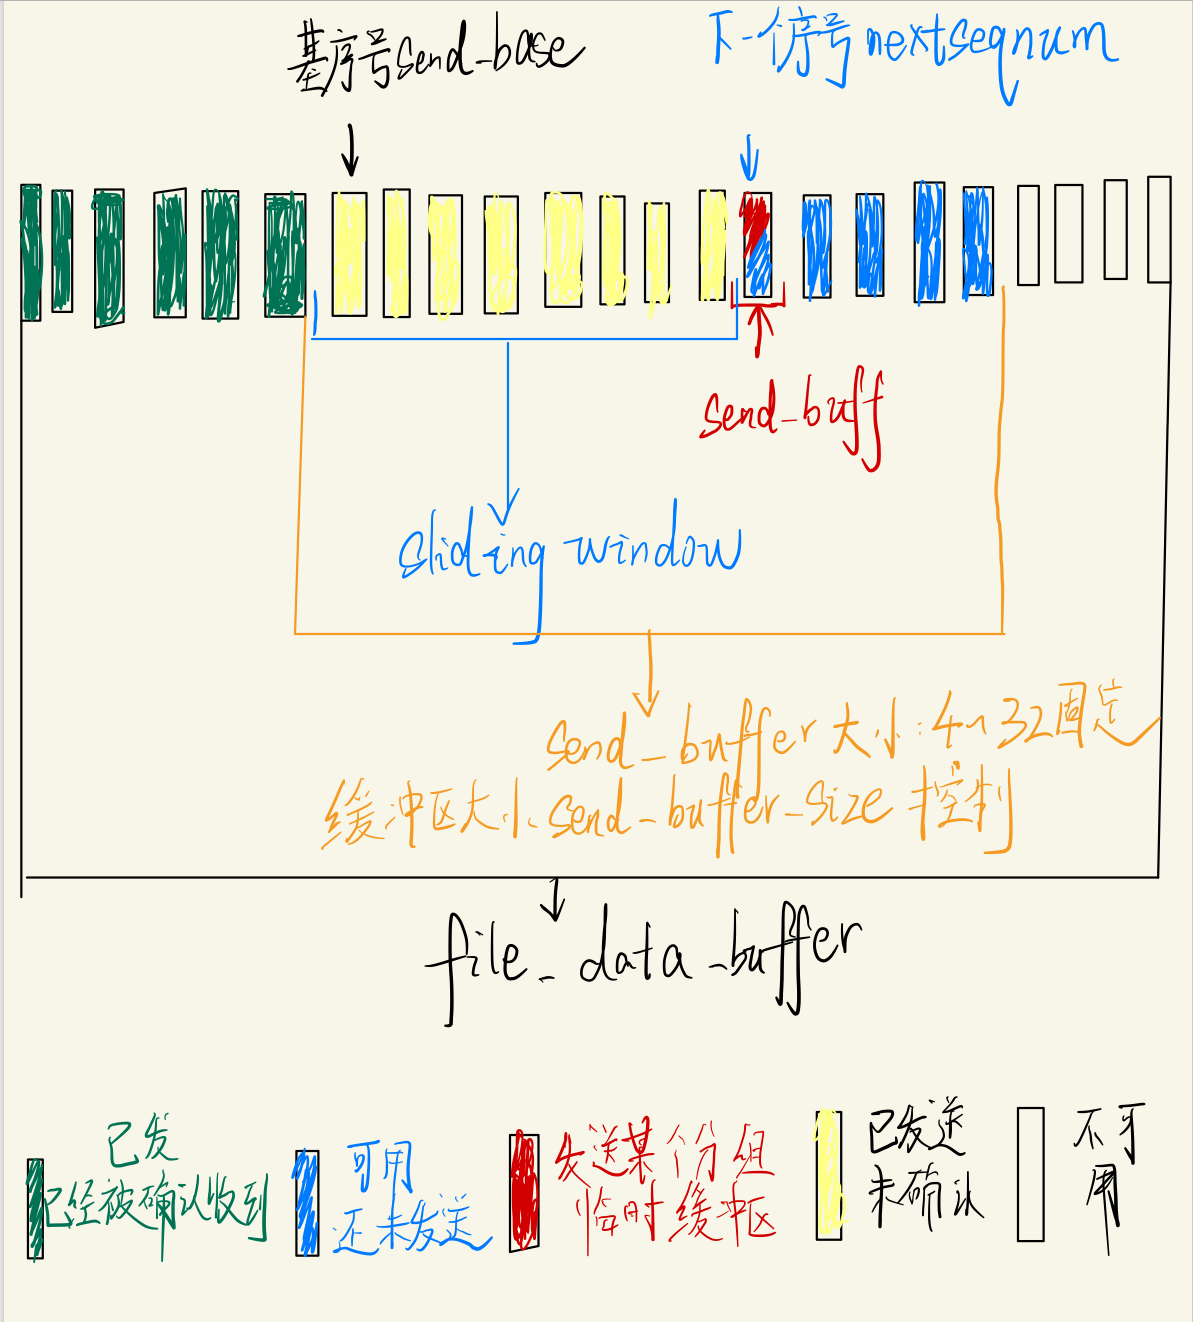 基序号send_base
下一个序号nextseqnum
send_buff
sliding window
send_buffer大小:4~32固定
缓冲区大小send_buffer_size控制
file_data_buffer
已发
已经被确认收到
可用
还未发送
发送某个分组
临时缓冲区
已发送
未确认
不可
用